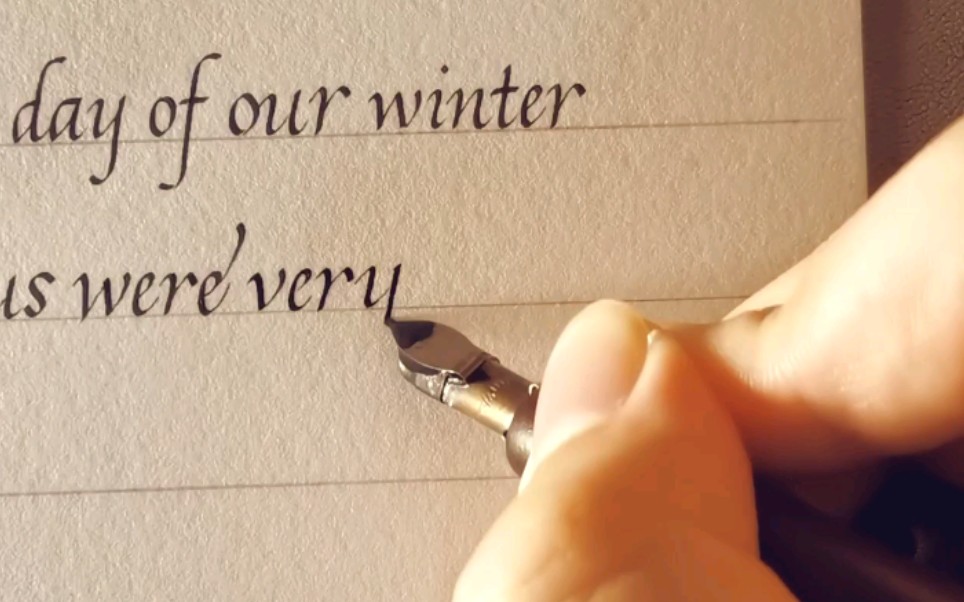 day of our winter
us were very